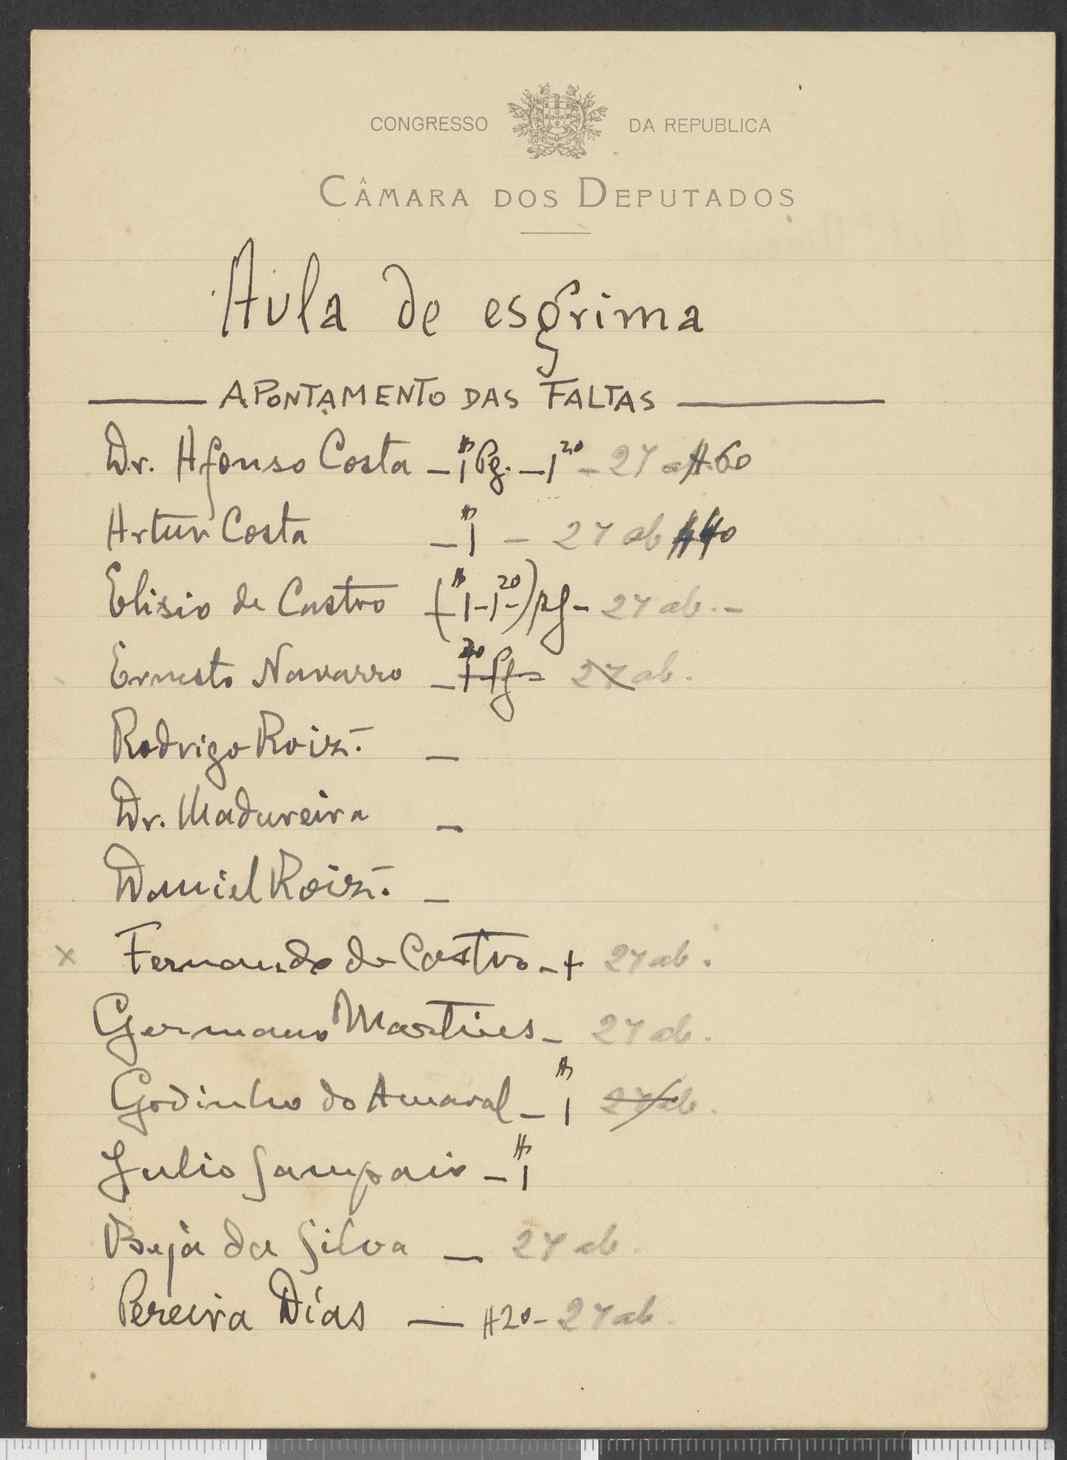 CONGRESSO DA REPUBLICA
CÂMARA DOS DEPUTADOS
Aula de esgrima
APONTAMENTO DAS FALTAS
Dr. Afonso Costa - 1 Pg. - 1 20 - 27 60
Artur Costa - 1 - 27 ab
Elisio de Castro (-1-1-) 20 pg - 27 ab. -
Ernesto Navarro - 20 1 Pg - 27 ab.
Rodrigo Roiz. -
Dr. Madureira -
Daniel Roiz. -
x Fernando de Castro - + 27 ab.
Germano Martins - 27 ab.
Godinho do Amaral - 1 27 ab.
Julio Sampaio - 1
Beja da Silva - 27 ab.
Pereira Días - A20 - 27 ab.